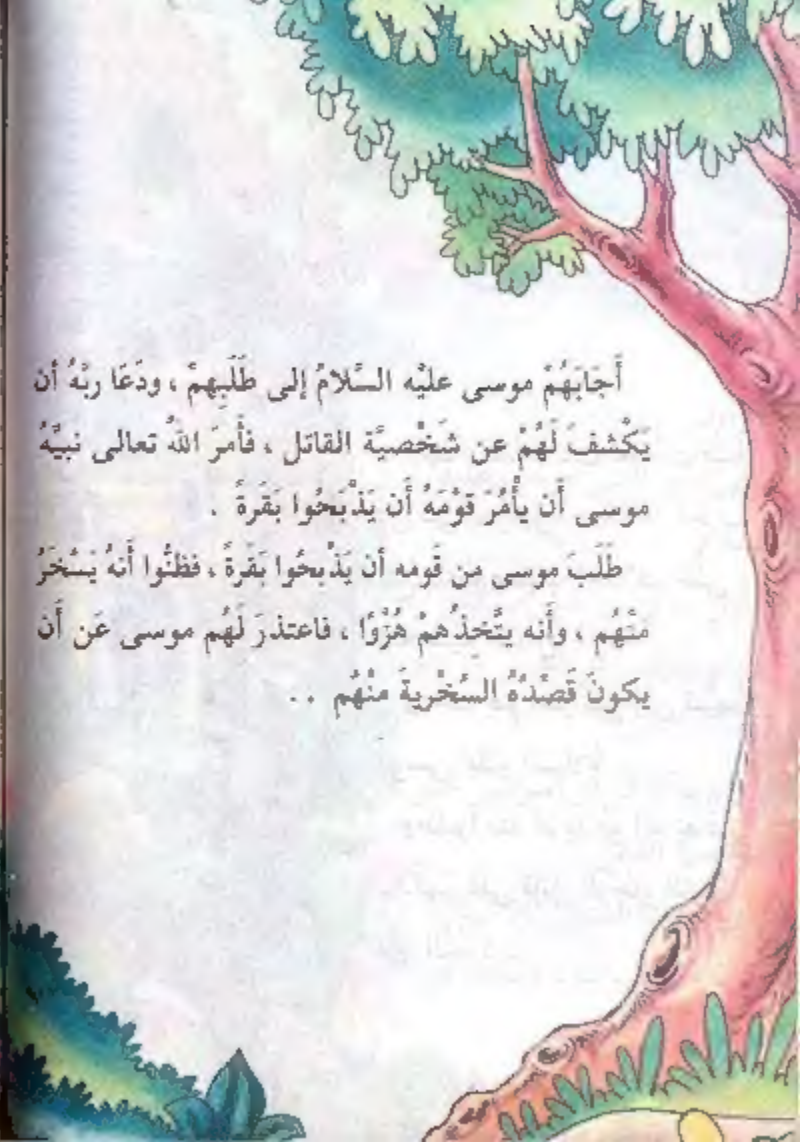 أَجَابَهُمْ موسى عليْه السَّلامُ إلى طَلَبِهِمْ ، ودَعَا ربَّهُ أن
يَكْشفَ لَهُمْ عن شَخْصيَّة القاتل ، فأَمرَ اللهُ تعالى نبيَّهُ
موسى أن يأْمُرَ قوْمَهُ أَن يَذْبَحُوا بَقَرةً .
طَلَبَ موسى من قَومه أن يَذْبحُوا بَقَرةً ، فظنُّوا أنهُ يَسْخَرُ
منْهُم ، وأَنه يتَّخذُهمْ هُزُوًا ، فاعتذرَ لَهُم موسى عَن أَن
يكونَ قَصْدُهُ السُّخْريةَ منْهُم . .